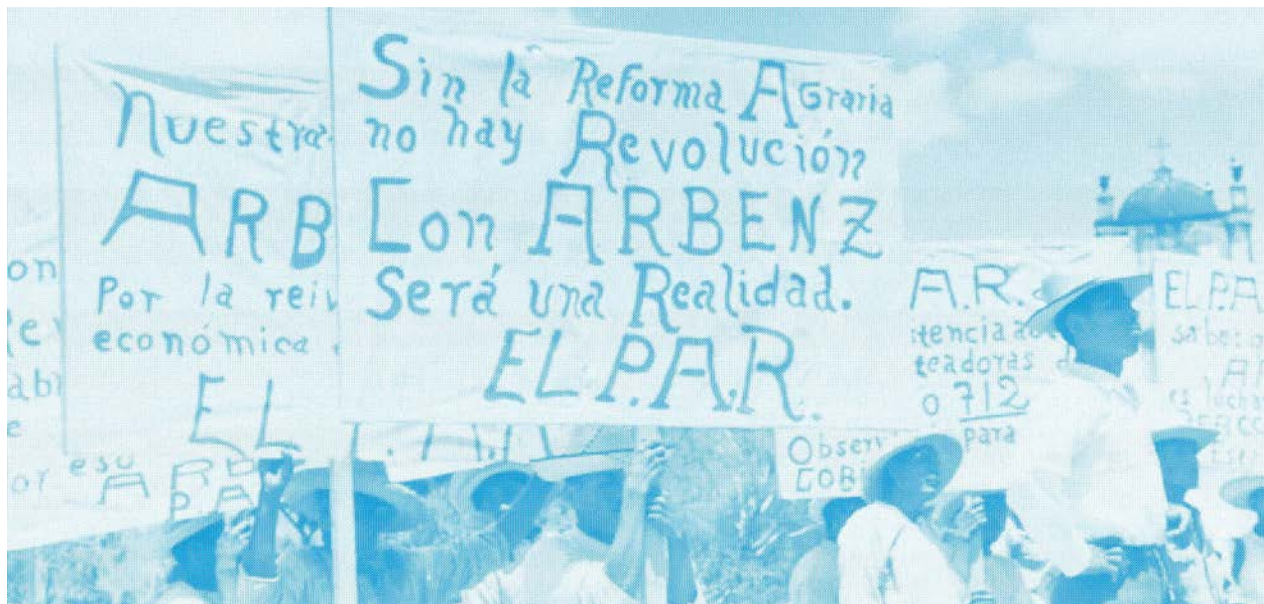 Sin la Reforma AGraria
no hay Revolución
Con ARBENZ
Será una Realidad.
EL P.A.R.
Nuestra
ARB
Por la reiv
económica
EL
on
or esu
P.A
A.R.
itencia
teadoras
o 712
para
Observ
GOBI
EL P.A
sabe
es lucha